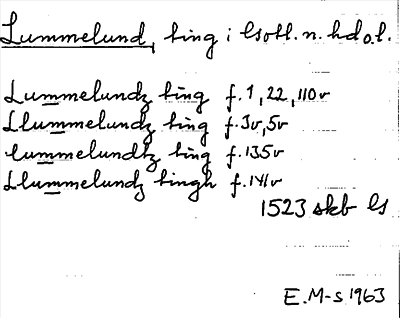 Lummelund, ting i Gotl. n. hd o. l.
Lummelundz ting f. 1, 22, 110v
Llummelundz ting f. 3v, 5v
lummelundtz ting f. 135v
Llummelundz tingh f. 141v
1523 skb Gs
E. M-s 1963